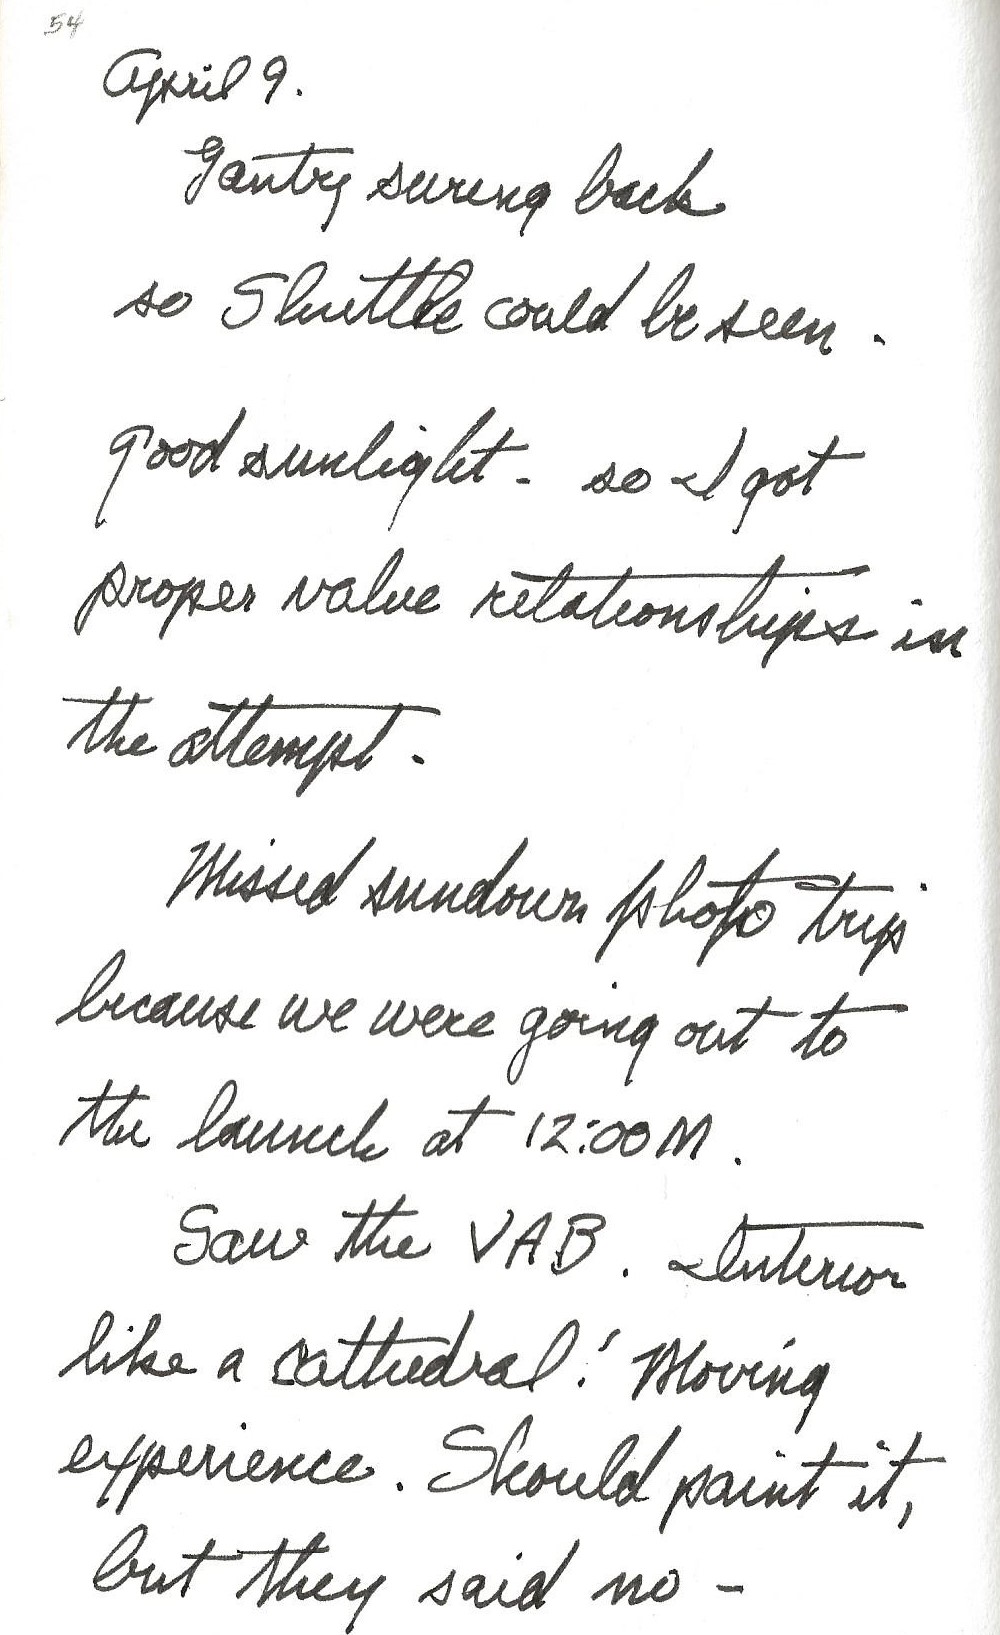 54
April 9.
Gantry swung back
so Shuttle could be seen.
good sunlight - so I got
proper value relationships in
the attempt.
Missed sundown photo trip
because we were going out to
the launch at 12:00 M.
Saw the VAB. Interior
like a cathedral! Moving
experience. Should paint it,
but they said no -